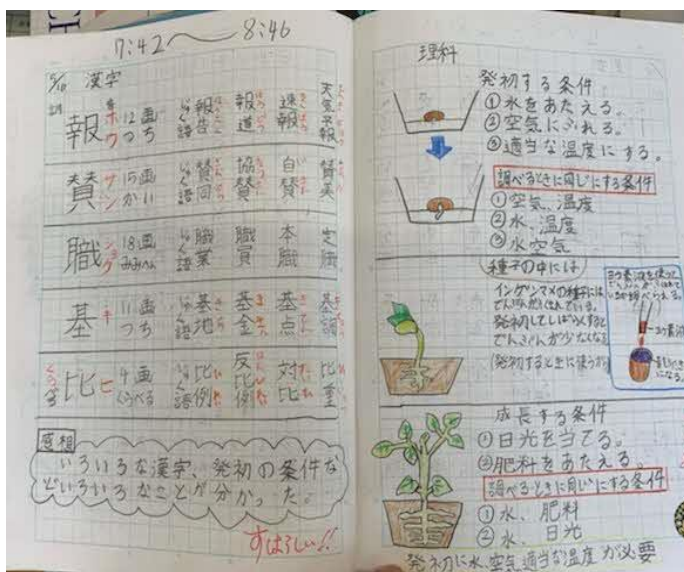 7:42 〜 8:46
5/10 漢字
報 ホウ 12画 つち じゅく語 報告 報道 速報 天気予報
賛 サン 15画 かい じゅく語 賛同 協賛 自賛 賛美
職 ショク 18画 みみへん じゅく語 職業 職員 本職 定職
基 キ 11画 つち じゅく語 基地 基金 基点 基調
比 ヒ くらべる 4画 くらべる じゅく語 比例 反比例 対比 比重
感想
いろいろな漢字、発初の条件な
どいろいろなことが分かった。
すばらしい!!
理科
発初する条件
①水をあたえる。
②空気にふれる。
③適当な温度にする。
調べるときに同じにする条件
①空気、温度
②水、温度
③水空気
種子の中には
インゲンマメの種子には
でんぷんがふくまれている。
発初してしばらくすると
でんぷんが少なくなる
(発初するときに使うから)
ヨウ素液を使って
ヨウ素液
になる。
成長する条件
①日光を当てる。
②肥料をあたえる。
調べるときに同じにする条件
①水、肥料
②水、日光
発初に水、空気適当な温度が必要